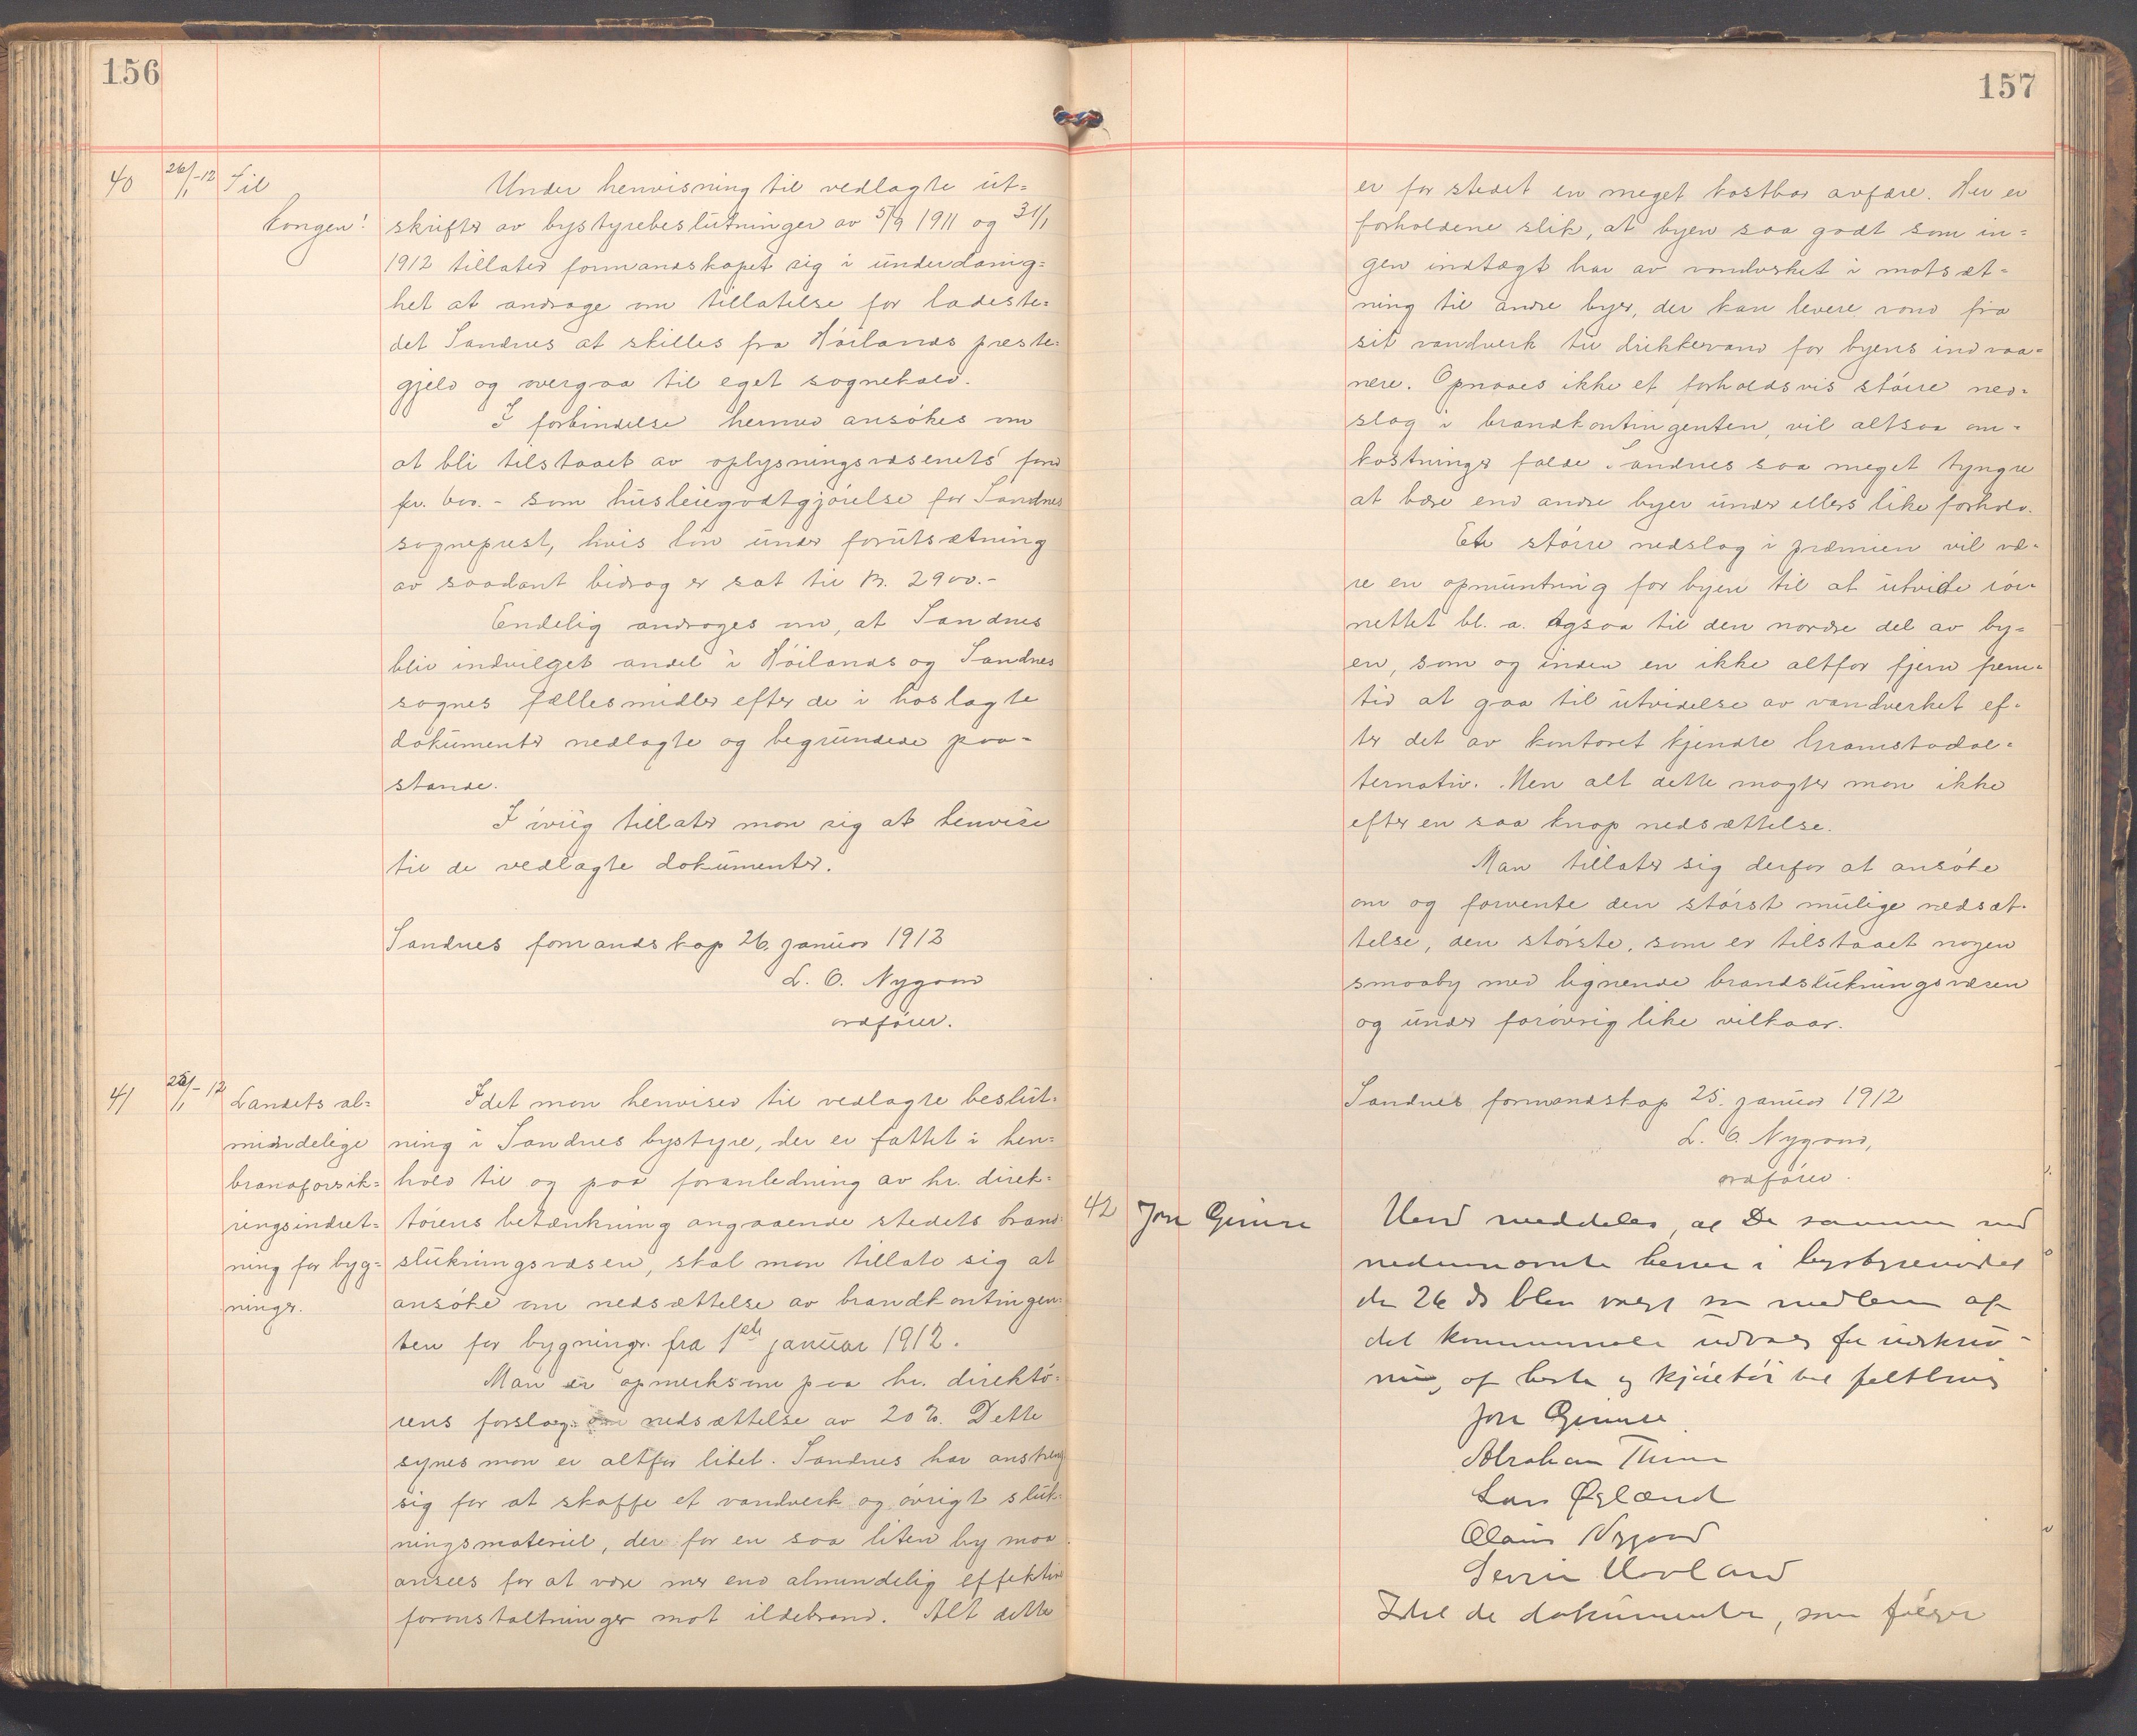 156
40 26/1-12 Til
kongen!
Under henvisning til vedlagte ut=
skrifter av bystyrebeslutninger av 5/9 1911 og 31/1
1912 tillater formandskapet sig i underdanig=
het at andrage om tillatelse for ladeste=
det Sandnes at skilles fra Höilands preste=
gjeld og overgaa til eget sognekald.
I forbindelse hermed ansökes om
at bli tilstaaet av oplysningsvæsenets fond
kr. 600.- som husleiegodtgjörelse for Sandnes
sogneprest, hvis lön under forutsætning
av saadant bidrag er sat til kr. 2900.-
Endelig androges om, at Sandnes
blir indvilget andel i Höilands og Sandnes
sognes fællesmidler efter de i hoslagte
dokumenter nedlagte og begrundede paa=
stande.
I övrig tillater man sig at henvise
til de vedlagte dokumenter.
Sandnes formandskap 26. januar 1912
L. O. Nygaard
ordförer.
41 25/1-12 Landets al=
mindelige
brandforsik=
ringsindret=
ning for byg=
ninger.
Idet man henviser til vedlagte beslut=
ning i Sandnes bystyre, der er fattet i hen=
hold til og paa foranledning av hr. direk=
törens betænkning angaaende stedets brand=
slukningsvæsen, skal man tillate sig at
ansöke om nedsættelse av brandkontingen=
ten for bygninger fra 1ste januar 1912.
Man er opmerksom paa hr. direktö=
rens forslag: nedsættelse av 20%. Dette
synes man er altfor litet. Sandnes har anstrengt
sig for at skaffe et vandverk og övrigt sluk=
ningsmateriel, der for en saa liten by maa
ansees for at være mer end almindelig effektive
foranstaltninger mot ildebrand. Alt dette
157
er for stedet en meget kostbar avfære. Her er
forholdene slik, at byen saa godt som in=
gen indtægt har av vandverket i motsæt=
ning til andre byer, der kan levere vand fra
sit vandverk til drikkevand for byens indvaa=
nere. Opnaaes ikke et forholdsvis större ned=
slag i brandkontingenten, vil altsaa om=
kostninger falde Sandnes saa meget tyngre
at bære end andre byer under ellers like forhold.
Et större nedslag i præmien vil væ=
re en opmuntring for byen til at utvide rör=
nettet bl. a. ogsaa til den nordre del av by=
en, som og inden en ikke altfor fjern frem=
tid at gaa til utvidelse av vandverket ef=
ter det av kontoret kjendte Gramstadal=
ternativ. Men alt dette magter man ikke
efter en saa knap nedsættelse.
Man tillater sig derfor at ansöke
om og forvente den störst mulige nedsæt=
telse, den störste, som er tilstaaet nogen
smaaby med lignende brandslukningsvæsen
og under forövrig like vilkaar.
Sandnes formandskap 25. januar 1912
L. O. Nygaard,
ordförer.
42 Jon Gimre
Herved meddeles, at De sammen med
nedennævnte herrer i bystyremötet
den 26 ds blev valgt som medlem af
det kommunale udvalg for udskriv=
ning af heste og kjöretöi til feltbrug
Jon Gimre
Abraham Thime
Lars Øglænd
Olaus Nygaard
Severin Hovland
Idel de dokumenter, som fölger